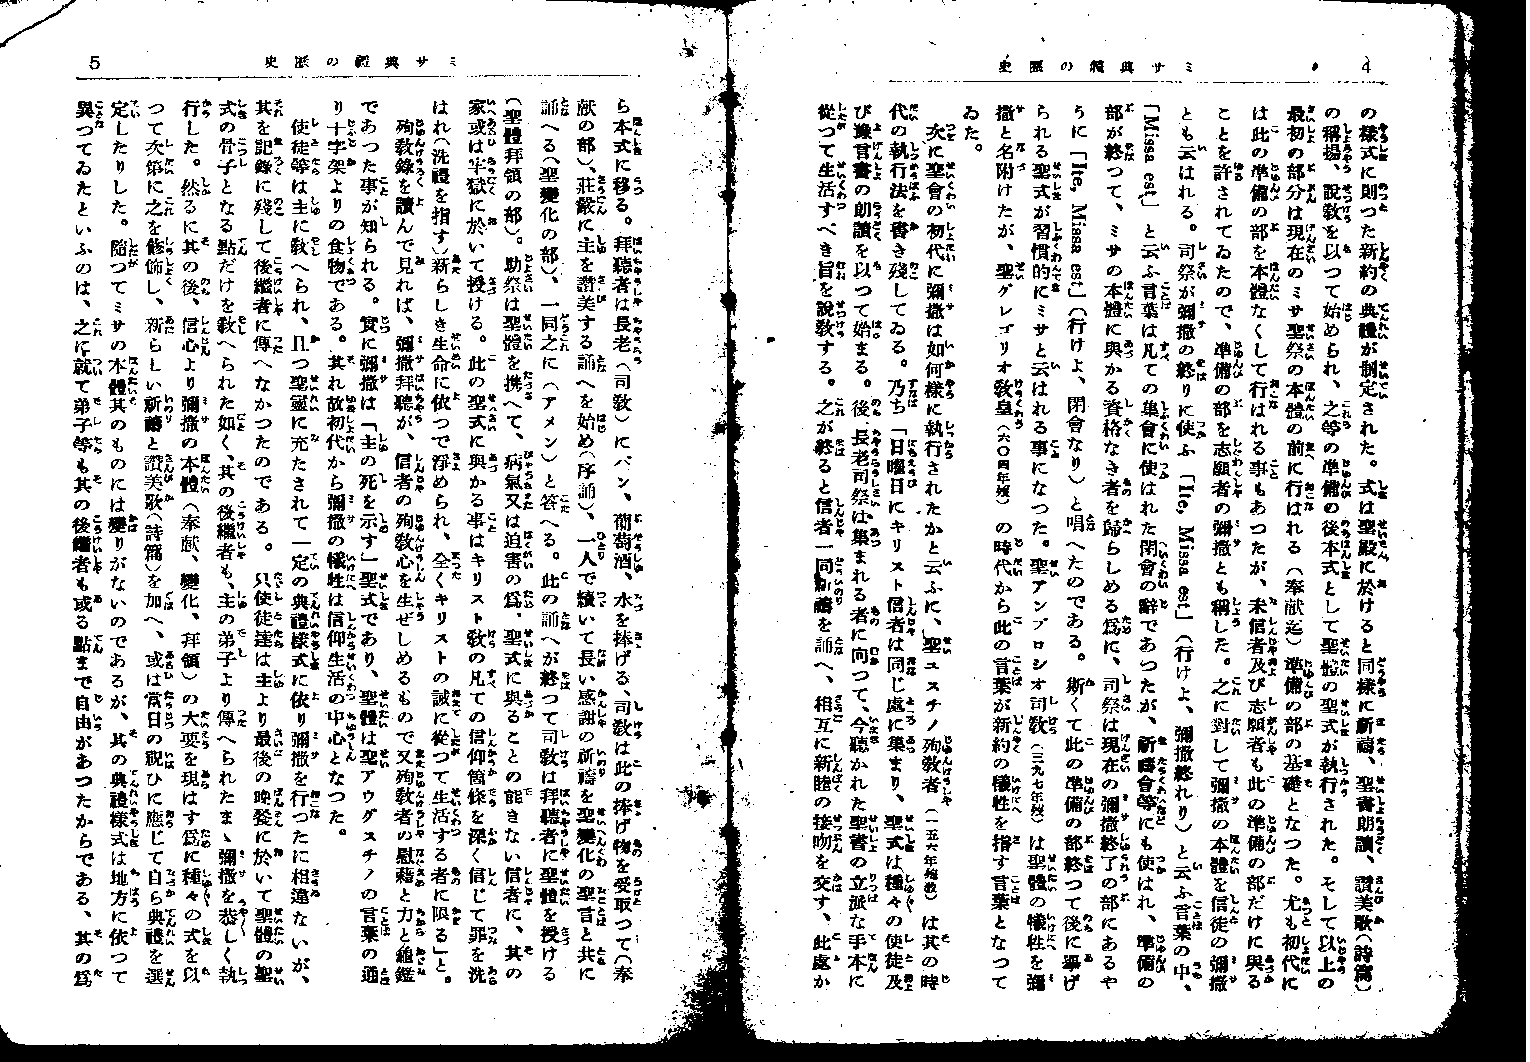 ミサ典禮の歴史
4
の樣式に則つた新約の典禮が制定された。式は聖殿に於けると同樣に祈禱、聖書朗讀、讃美歌(詩篇)
の稱揚、說敎を以つて始められ、之等の準備の後本式として聖體の聖式が執行された。そして以上の
最初の部分は現在のミサ聖祭の本體の前に行はれる(奉献迄)準備の部の基礎となつた。尤も初代に
は此の準備の部を本體なくして行はれる事もあつたが、未信者及び志願者も此の準備の部だけに與る
ことを許されてゐたので、準備の部を志願者の彌撒とも稱した。之に對して彌撒の本體を信徒の彌撒
とも云はれる。司祭が彌撒の終りに使ふ「Ite, Missa est」(行けよ、彌撒終れり)と云ふ言葉の中、
「Missa est」と云ふ言葉は凡ての集會に使はれた閉會の辭であつたが、祈禱會等にも使はれ、準備の
部が終つて、ミサの本體に與かる資格なき者を歸らしめる爲に、司祭は現在の彌撒終了の部にあるや
うに「Ite, Missa est」(行けよ、閉會なり)と唱へたのである。斯くて此の準備の部終つて後に擧げ
られる聖式が習慣的にミサと云はれる事になつた。聖アンブロシオ司敎(三九七年歿)は聖體の犠牲を彌
撒と名附けたが、聖グレゴリオ敎皇(六〇四年歿)の時代から此の言葉が新約の犠牲を指す言葉となつて
ゐた。
次に聖會の初代に彌撒は如何樣に執行されたかと云ふに、聖ユスチノ殉敎者(一五六年殉敎)は其の時
代の執行法を書き殘してゐる。乃ち「日曜日にキリスト信者は同じ處に集まり、聖式は種々の使徒及
び豫言書の朗讀を以つて始まる。後、長老司祭は集まれる者に向つて、今聽かれた聖書の立派な手本に
從つて生活すべき旨を說敎する。之が終ると信者一同祈禱を誦へ、相互に親睦の接吻を交す、此處か
ミサ典禮の歴史
5
ら本式に移る。拜聽者は長老(司敎)にパン、葡萄酒、水を捧げる、司敎は此の捧げ物を受取つて(奉
献の部)、莊嚴に主を讃美する誦へを始め(序誦)、一人で續いて長い感謝の祈禱を聖變化の聖言と共に
誦へる(聖變化の部)、一同之に(アメン)と答へる。此の誦へが終つて司敎は拜聽者に聖體を授ける
(聖體拜領の部)。助祭は聖體を携へて、病氣又は迫害の爲、聖式に與ることの能きない信者に、其の
家或は牢獄に於いて授ける。此の聖式に與かる事はキリスト敎の凡ての信仰箇條を深く信じて罪を洗
はれ(洗禮を指す)新らしき生命に依つて淨められ、全くキリストの誡に從つて生活する者に限る」と。
殉敎錄を讀んで見れば、彌撒拜聽が、信者の殉敎心を生ぜしめるもので又殉敎者の慰藉と力と龜鑑
であつた事が知られる。實に彌撒は「主の死を示す」聖式であり、聖體は聖アウグスチノの言葉の通
り十字架よりの食物である。其れ故初代から彌撒の犠牲は信仰生活の中心となつた。
使徒等は主に敎へられ、且つ聖靈に充たされて一定の典禮樣式に依り彌撒を行つたに相違ないが、
其を記錄に殘して後繼者に傳へなかつたのである。只使徒達は主より最後の晩餐に於いて聖體の聖
式の骨子となる點だけを敎へられた如く、其の後繼者も、主の弟子より傳へられたまゝ彌撒を恭しく執
行した。然るに其の後、信心より彌撒の本體(奉献、變化、拜領)の大要を現はす爲に種々の式を以
つて次第に之を修飾し、新らしい祈禱と讃美歌(詩篇)を加へ、或は當日の祝ひに應じて自ら典禮を選
定したりした。隨つてミサの本體其のものには變りがないのであるが、其の典禮樣式は地方に依つて
異つてゐたといふのは、之に就て弟子等も其の後繼者も或る點まで自由があつたからである、其の爲